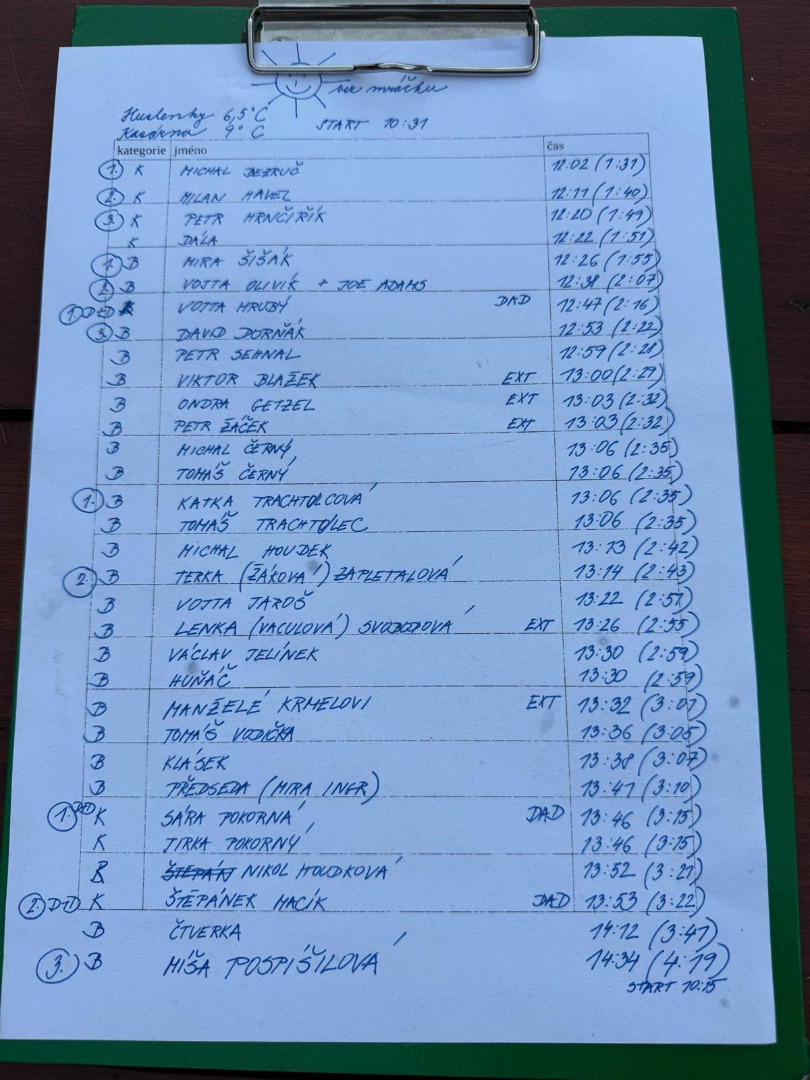 bez mráčku
Huslenky 6,5°C
Kasárna 9°C START 10:31
kategorie jméno čas
1. K MICHAL BEZRUČ 12:02 (1:31)
2. K MILAN HAVEL 12:11 (1:40)
3. K PETR HRNČIŘÍK 12:20 (1:49)
K DÁLA 12:22 (1:51)
1. B MIRA ŠIŠÁK 12:26 (1:55)
2. B VOJTA OLIVÍK + JOE ADAMS 12:38 (2:07)
1. D+D VOJTA HRUBÝ DAD 12:47 (2:16)
3. B DAVID DORŇÁK 12:53 (2:22)
B PETR SEHNAL 12:59 (2:28)
B VIKTOR BLAŽEK EXT 13:00 (2:29)
B ONDRA GETZEL EXT 13:03 (2:32)
B PETR ŽÁČEK EXT 13:03 (2:32)
B MICHAL ČERNÝ 13:06 (2:35)
B TOMÁŠ ČERNÝ 13:06 (2:35)
1. B KATKA TRACHTOLCOVÁ 13:06 (2:35)
B TOMÁŠ TRACHTULEC 13:06 (2:35)
B MICHAL HOUDEK 13:13 (2:42)
2. B TERKA (ŽÁKOVÁ) ZAPLETALOVÁ 13:14 (2:43)
B VOJTA JAROŠ 13:22 (2:51)
B LENKA (VACULOVÁ) SVOBODOVÁ EXT 13:26 (2:55)
B VÁCLAV JELÍNEK 13:30 (2:59)
B HUŇÁČ 13:30 (2:59)
B MANŽELÉ KRMELOVI EXT 13:32 (3:01)
B TOMÁŠ VODIČKA 13:36 (3:05)
B KLÁSEK 13:38 (3:07)
B PŘEDSEDA (MIRA INGR) 13:41 (3:10)
1. D+D K SÁRA POKORNÁ DAD 13:46 (3:15)
K JIRKA POKORNÝ 13:46 (3:15)
B ŠTEPÁN NIKOL HOUDKOVÁ 13:52 (3:21)
2. D+D K ŠTĚPÁNEK MACÍK DAD 13:53 (3:22)
B ČTVERKA 14:12 (3:41)
3. B MÍŠA POSPÍŠILOVÁ 14:34 (4:19)
START 10:15